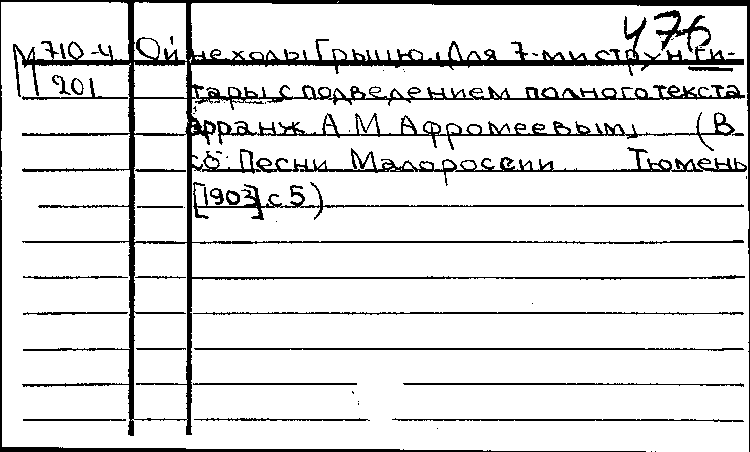 476
М 710-4 Ой не ходы Грыцю. (Для 7-ми струн ги-
201 тары с подведением полного текста
арранж. А М Афромеевым) (В
сб: Песни Малороссии Тюмень
[1903] с 5)